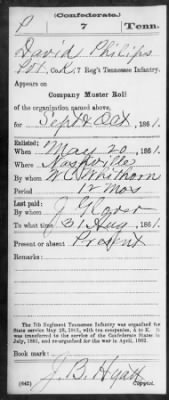 (Confederate.)
P 7 Tenn.
David Philips
Pvt, Co. K, 7 Reg't Tennessee Infantry.
Appears on
Company Muster Roll
of the organization named above,
for Sept & Oct, 1861.
Enlisted:
When May 20, 1861.
Where Nashville
By whom W.C. Whithorn
Period 12 Mos
Last paid:
By whom J Glover
To what time 31 Aug, 1861.
Present or absent Present
Remarks:
The 7th Regiment Tennessee Infantry was organized for
State service May 25, 1861, with ten companies, A to K. It
was transferred to the service of the Confederate States in
July, 1861, and organized for the war in April, 1862.
Book mark:
J. B. Hyatt
(642) Copyist.